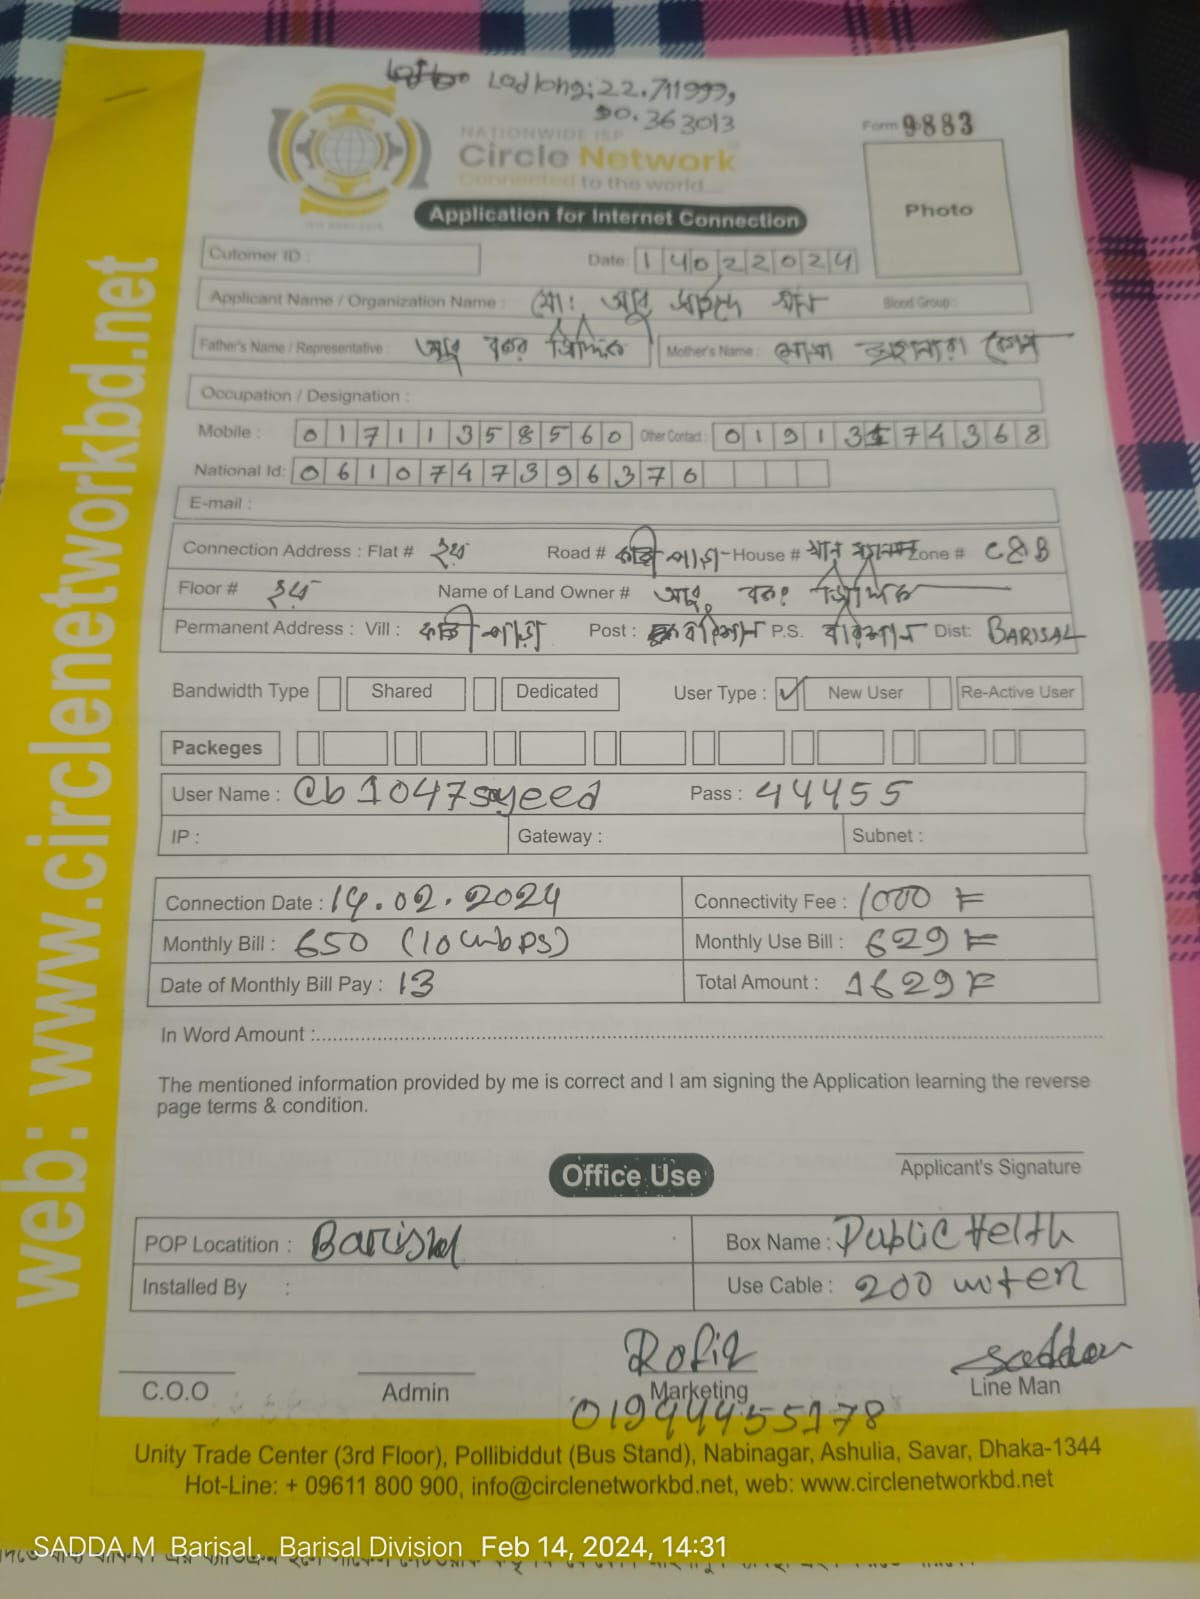 Lad long: 22.711999,
90.363013
NATIONWIDE ISP
Circle Network
Connected to the world...
Form 9883
Photo
Application for Internet Connection
Cutomer ID :
Date: 14022024
Applicant Name / Organization Name : মো: আবু সাইদ খান Blood Group :
Father's Name / Representative : আবু বকর সিদ্দিক Mother's Name :
Occupation / Designation :
Mobile : 01711358560 Other Contact :
National Id: 0610747396376
E-mail :
Connection Address : Flat # ২য় Road # কাজী পাড়া House # খান Zone # C&B
Floor # ২য় Name of Land Owner # আবু বকর সিদ্দিক
Permanent Address : Vill : কাজী পাড়া Post : বরিশাল P.S. বরিশাল Dist: BARISAL
Bandwidth Type Shared Dedicated User Type : ✓ New User Re-Active User
Packeges
User Name : cb1047sayeed Pass : 44455
IP : Gateway : Subnet :
Connection Date : 14.02.2024 Connectivity Fee : 1000
Monthly Bill : 650 (10mbps) Monthly Use Bill : 629
Date of Monthly Bill Pay : 13 Total Amount : 1629
In Word Amount :
The mentioned information provided by me is correct and I am signing the Application learning the reverse
page terms & condition.
Applicant's Signature
Office Use
POP Locatition : Barisal Box Name : Public Helth
Installed By : Use Cable : 200 miter
Rofiq Saddam
C.O.O Admin Marketing Line Man
Unity Trade Center (3rd Floor), Pollibiddut (Bus Stand), Nabinagar, Ashulia, Savar, Dhaka-1344
Hot-Line: + 09611 800 900, info@circlenetworkbd.net, web: www.circlenetworkbd.net
web: www.circlenetworkbd.net
SADDA.M Barisal, Barisal Division Feb 14, 2024, 14:31